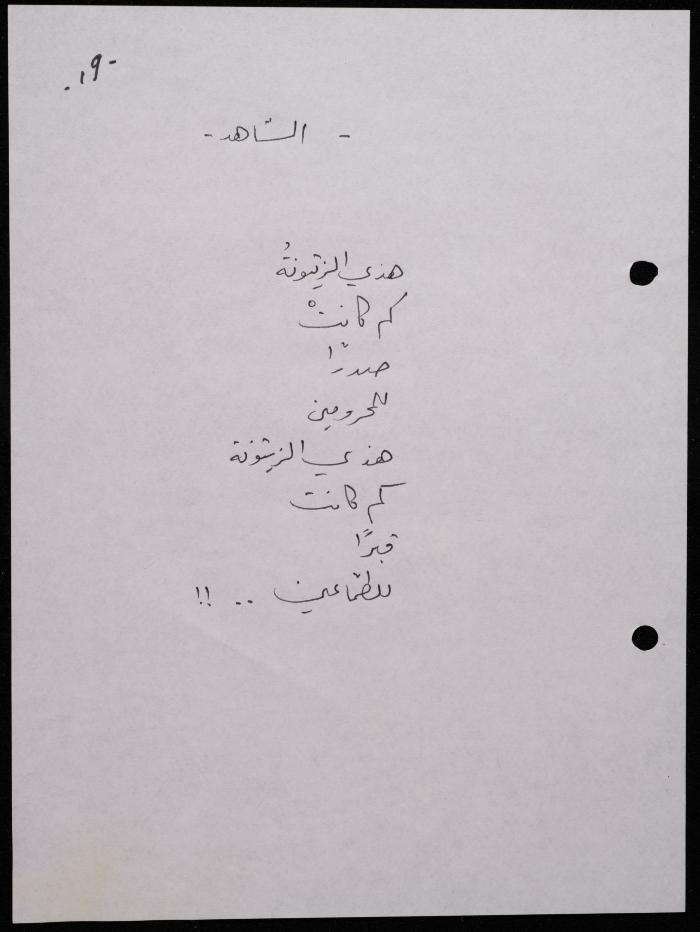 -١٩.
- الشّاهد -
هذي الزيتونةُ
كم كانتْ
صدرًا
للمحرومين
هذي الزيتونة
كم كانت
قبرًا
للطمّاعين .. !!